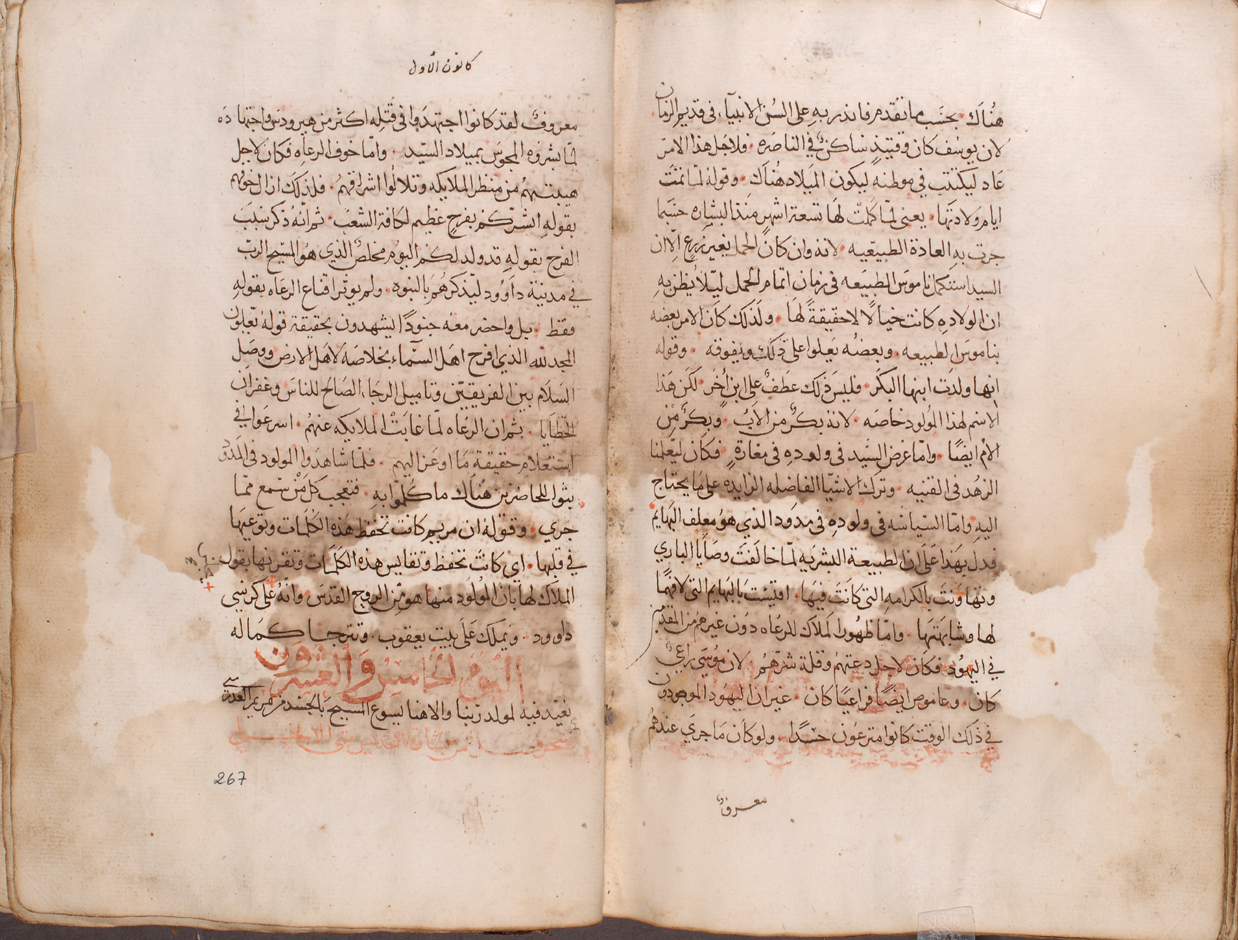 هُناك بحسَب ما تقدم فانذر بهِ على السُن الانبيآء في قديم الزمان
لان يوسف كان وقتيذٍ ساكنٌ في الناصره فلاجل هذا الامر
عاد ليكتتب في موطنه ليكون الميلاد هُناك وقوله لما تمت
ايام ولادتها يعنى لما كملت لها تسعة اشهر منذ البشاره حسبما
جرت به العادة الطبيعيه لانه وان كان الحمل بغير زرع الا ان
السيد استكمل ناموس الطبيعه في زمان اتمام الحمل ليلا يُظن به
ان الولاده كانت خيالاً لا حقيقةً لها ولذلك كان الامر بعضه
بناموس الطبيعه وبعضُه يعلوا على ذلك ويفوقه وقوله
انها ولدت ابنها البكر فليس ذلك عطفٌ على ابن اخر لكن هذا
الاسم لهذا المولود خاصه لانه بكرٌ من الاب وبكرٌ من
الام ايضًا واما غرض السَيد في ولوده في مغارةٍ فكان ليعلمنا
الزهد في القنيه وترك الاشيا الفاضله الزايده على ما يحتاج
اليه واما السياسَه في ولوده في مدود الذي هو معلف البهايم
فدل بهذا على ان الطبيعة البشريه لما خالفت وصايا الباري
وتهاونت بالكرامه التي كانت فيها اقيست بالبهايم التي لا فهما
لها وشابهتها واما ظهور الملاك للرعاه دون غيرهم من المقدمين
في اليهود فكان لاجل دعتهم وقلة شرهم لان موسى راعي
كان وعاموص ايضًا راعيًا كان غير ان اليهود الموجودون
في ذلك الوقت كانوا مترعون حسدًا ولو كان ما جرى عندهم
معروفٌ
كانون الاول
معروفٌ لقد كانوا اجتهدوا في قتله اكثر من هيرودس واجتهاده
لما بشروه المجوس بميلاد السيد واما خوف الرعاه فكان لاجل
هيبتهم من منظر الملايكه وتلالوا اشراقهم فلذلك ازال خوفهم
بقوله ابشركم بفرح عظيم لكافة الشعب ثم انه ذكر سَبب
الفرح بقوله قد ولد لكم اليوم مخلصٌ الذي هو المسيح الرب
في مدينة داوود ليذكرهم بالنبوه ولم يوثر اقناع الرعاه بقوله
فقط بل واحضر معه جنودًا يشهدون بحقيقة قوله يقولون
المجد لله الذي افرح اهل السمآء بخلاصه لاهل الارض ووصل
السَلام بين الفريقين وتاميل الرجاء الصالح للناس وغفران
الخطايا ثم ان الرعاه لما غابت الملايكه عنهم اسرعوا في
استعلام حقيقة ما اوعز اليهم فلما شاهدوا المولود في المدود
بثوا للحاضرين هُناك ما كلموا به فتعجب كل من سمع مما
جرى وقوله ان مريم كانت تحفظ هذه الكلمات وتوعيها
في قلبها اي كانت تحفظ وتقايس هذه الكلمات وتقرنها بقول
الملاك لها بان المولود منها هو من الروح القدس وانه على كرسي
داوود ويملك على بيت يعقوب وتترجا كماله
اليوم الخامس والعشرون
نعيد فيه لمولد ربنا والاهنا يسوع المسيح بالجسد من مريم العذرى
267